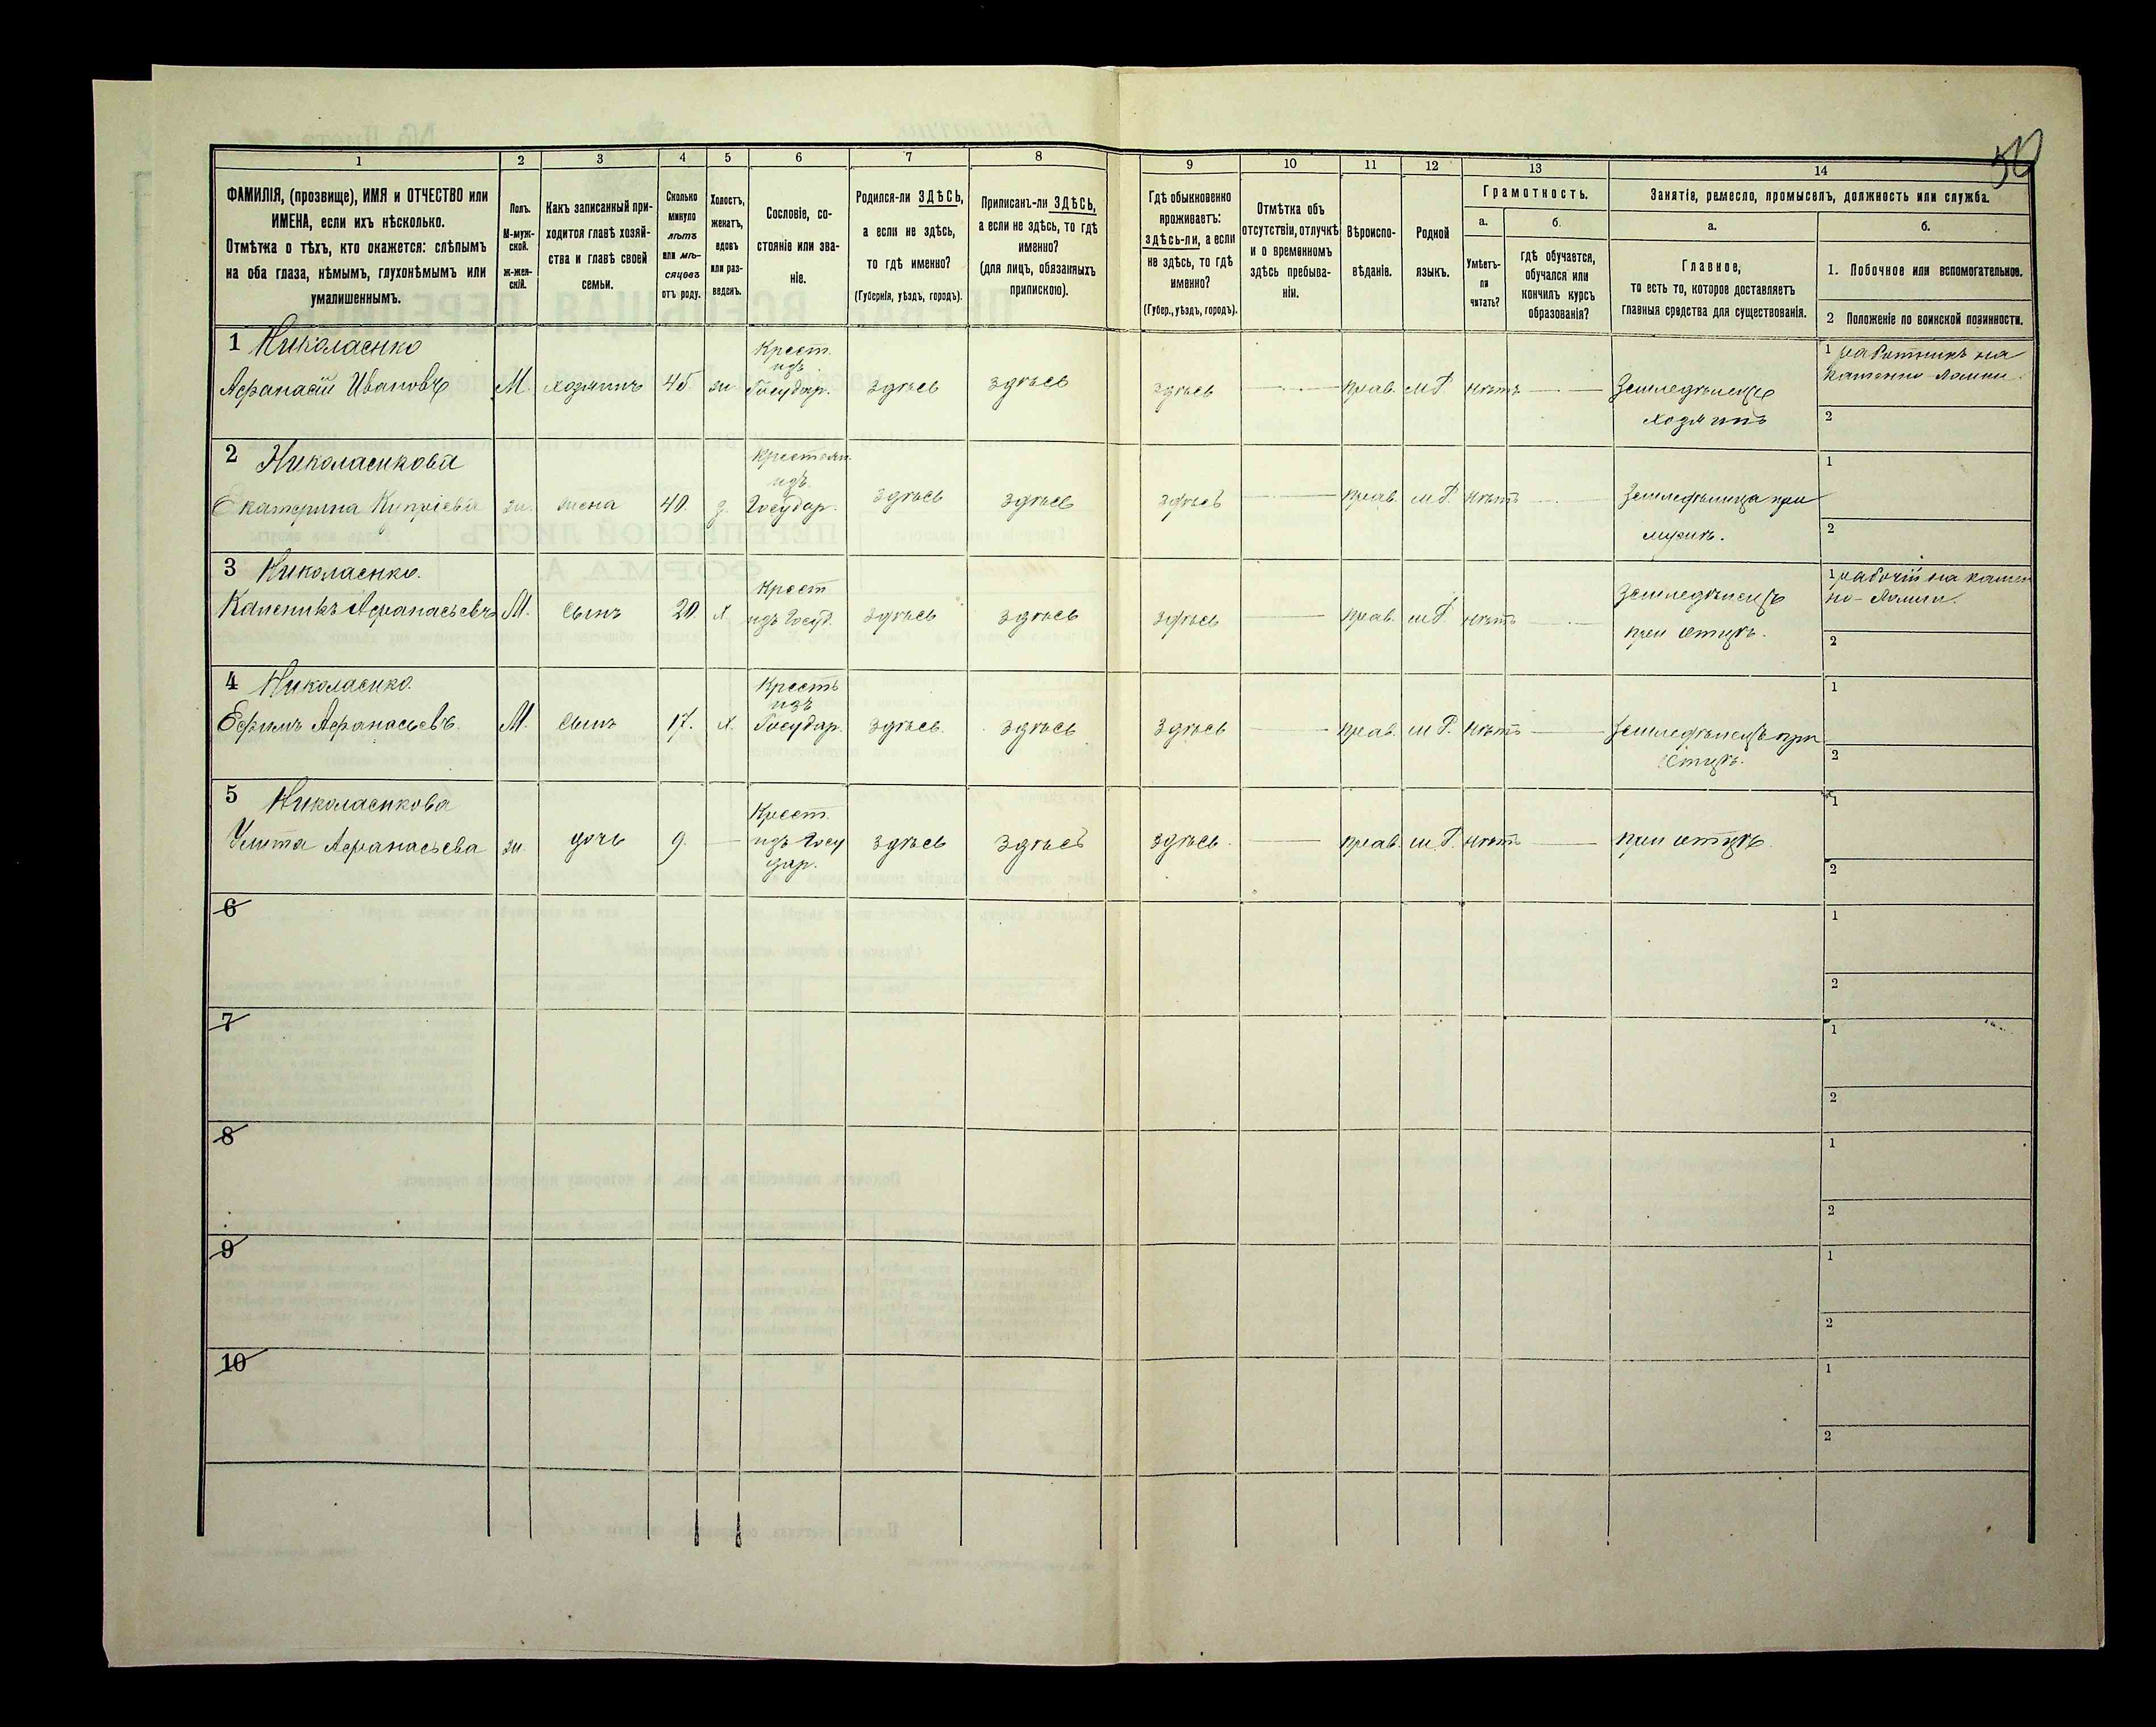 50
1 2 3 4 5 6 7 8 9 10 11 12 13 14
ФАМИЛІЯ, (прозвище), ИМЯ и ОТЧЕСТВО или
ИМЕНА, если ихъ нѣсколько.
Отмѣтка о тѣхъ, кто окажется: слѣпымъ
на оба глаза, нѣмымъ, глухонѣмымъ или
умалишеннымъ.
Полъ.
М-муж-
ской.
Ж-жен-
скій.
Какъ записанный при-
ходится главѣ хозяй-
ства и главѣ своей
семьи.
Сколько
минуло
лѣтъ
или мѣ-
сяцевъ
отъ роду.
Холостъ,
женатъ,
вдовъ
или раз-
веденъ.
Сословіе, со-
стояніе или зва-
ніе.
Родился-ли ЗДѢСЬ,
а если не здѣсь,
то гдѣ именно?
(Губернія, уѣздъ, городъ).
Приписанъ-ли ЗДѢСЬ,
а если не здѣсь, то гдѣ
именно?
(для лицъ, обязанныхъ
припискою).
Гдѣ обыкновенно
проживаетъ:
здѣсь-ли, а если
не здѣсь, то гдѣ
именно?
(Губер., уѣздъ, городъ).
Отмѣтка объ
отсутствіи, отлучкѣ
и о временномъ
здѣсь пребыва-
ніи.
Вѣроиспо-
вѣданіе.
Родной
языкъ.
Грамотность.
а.
Умѣетъ-
ли
читать?
б.
гдѣ обучается,
обучался или
кончилъ курсъ
образованія?
Занятія, ремесло, промыселъ, должность или служба.
а.
Главное,
то есть то, которое доставляетъ
главныя средства для существованія.
б.
1. Побочное или вспомогательное.
2 Положеніе по воинской повинности.
1 Николаенко
Афанасій Ивановъ М. хозяинъ 45 ж Крест. изъ Государ. здѣсь здѣсь здѣсь — прав. м.Р. нѣтъ — Земледѣлецъ
хозяинъ
1 работникъ на
каменно-ломни.
2
2 Николаенкова
Екатерина ж. жена 40. з. Крестьян. изъ Государ. здѣсь здѣсь здѣсь — прав. м.Р. нѣтъ — Земледѣлица при
мужѣ.
1
2
3 Николаенко.
Каленикъ Афанасьевъ М. сынъ 20 х Крест изъ Госуд. здѣсь здѣсь здѣсь — прав. м.Р. нѣтъ — Земледѣлецъ
при отцѣ.
1 рабочій на камен
но-ломни.
2
4 Николаенко.
Ефимъ Афанасьевъ. М. сынъ 17. х. Крестъ изъ Государ. здѣсь. здѣсь здѣсь — прав. м.Р. нѣтъ — Земледѣлецъ при
отцѣ.
1
2
5 Николаенкова
Улита Афанасьева ж. дочь 9. — Крест. изъ Госу
дар. здѣсь здѣсь здѣсь. — прав. м.Р. нѣтъ — при отцѣ.
1
2
6
1
2
7
1
2
8
1
2
9
1
2
10
1
2